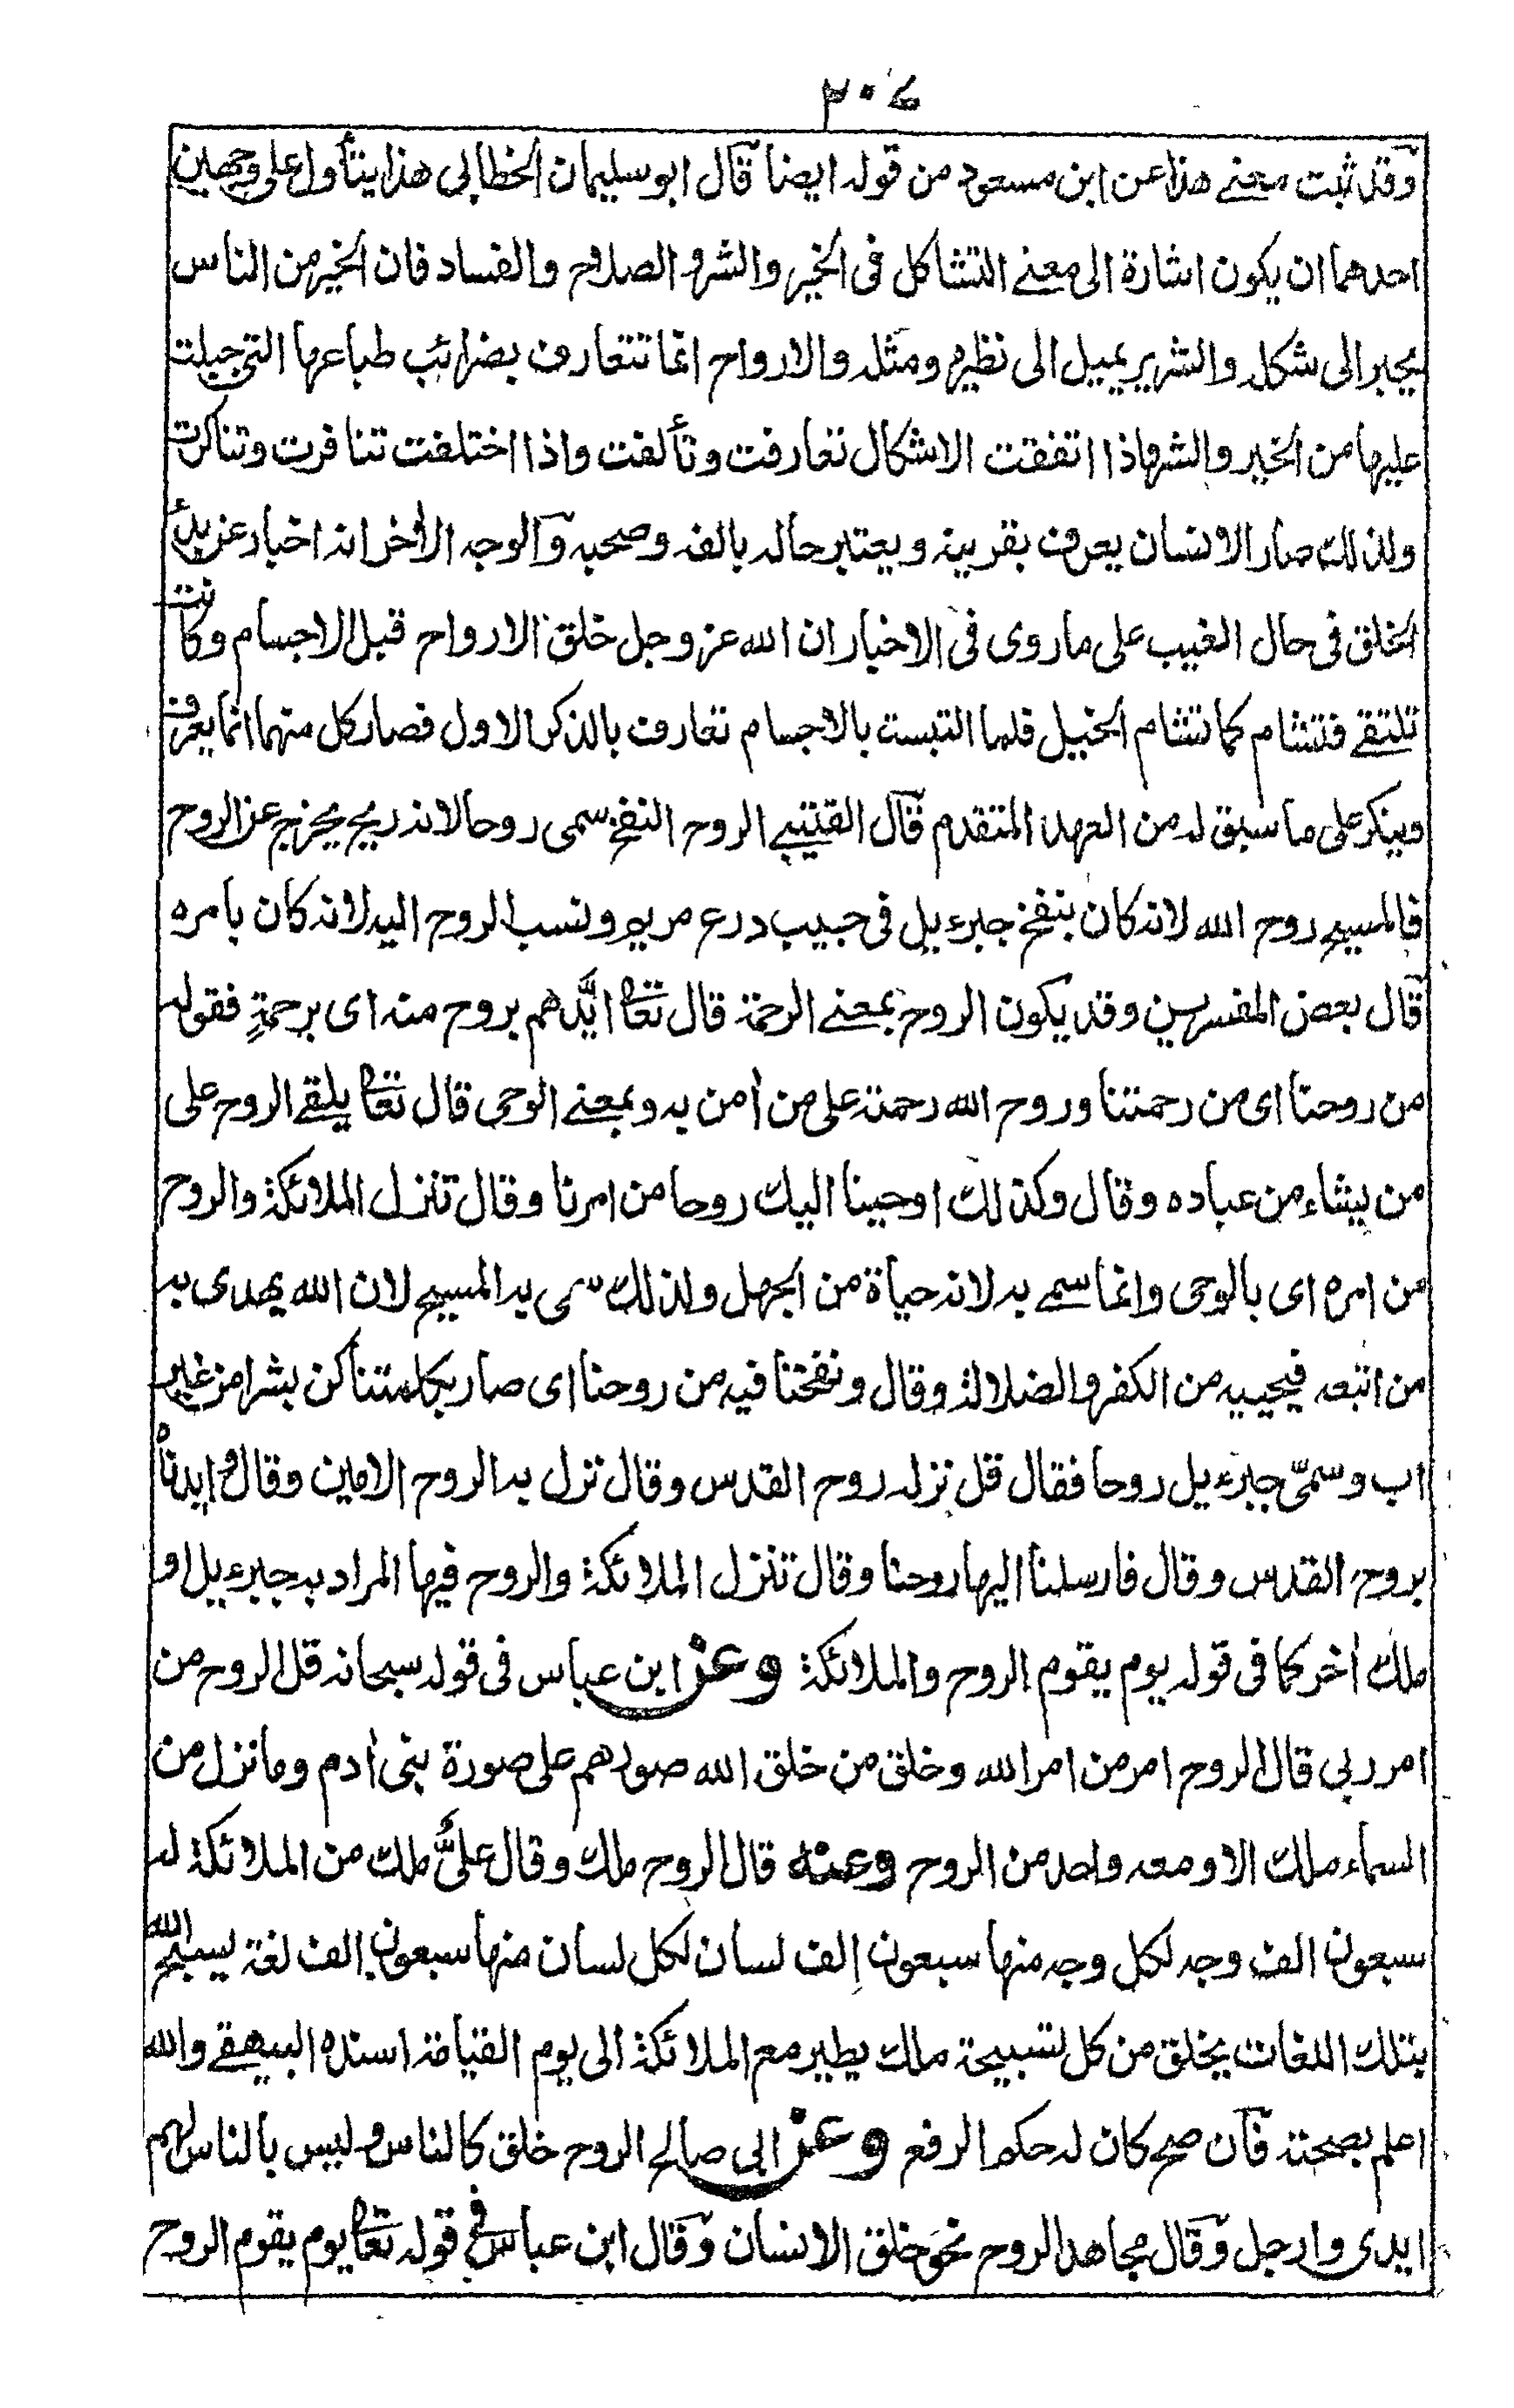 ٢٠٤
وقد ثبت معنے هذا عن ابن مسعود من قوله ايضا قال ابو سليمان الخطابي هذا يتأول على وجهين
احدهما ان يكون اشارة الى معنے التشاكل فى الخير والشر و الصلاح والفساد فان الخير من الناس
يحير الى شكله والشرير يميل الى نظيره ومثله والارواح انما تتعارف بضرائب طباعها التى جبلت
عليها من الخير والشر فاذا اتفقت الاشكال تعارفت وتألفت واذا اختلفت تنافرت وتناكرت
ولذلك صار الانسان يعرف بقرينه ويعتبر حاله بالفه وصحبه والوجه الأخر انه اخبار عن بدأ
الخلق فى حال الغيب على ما روى فى الاخبار ان الله عز وجل خلق الارواح قبل الاجسام وكانت
تلتقے فتشام كما تشام الخيل فلما التبست بالاجسام تعارف بالذكر الاول فصار كل منهما انما يعرف
وينكر على ما سبق له من العهد المتقدم قال القتيبے الروح النفخ سمى روحا لانه ريح يخرج عن الروح
فالمسيح روح الله لانه كان بنفخ جبرءيل فى جيب درع مريم ونسب الروح اليه لانه كان بامره
قال بعض المفسرين وقد يكون الروح بمعنے الرحمة قال تعا ايَّدهم بروح منه اى برحمةٍ فقوله
من روحنا اى من رحمتنا وروح الله رحمته على من أمن به وبمعنے الوحى قال تعا يلقے الروح على
من يشاء من عباده وقال وكذلك اوحينا اليك روحا من امرنا وقال تنزل الملائكة والروح
من امره اى بالوحى وانما سمے به لانه حياة من الجهل ولذلك سمى به المسيح لان الله يهدى به
من اتبعه فيحييه من الكفر والضلالة وقال ونفخنا فيه من روحنا اى صار بكلمتنا كن بشرا من غير
اب وسمّى جبرءيل روحا فقال قل نزله روح القدس وقال نزل به الروح الامين وقال وايدناه
بروح القدس وقال فارسلنا اليها روحنا وقال تنزل الملائكة والروح فيها المراد به جبرءيل او
ملك أخر كما فى قوله يوم يقوم الروح والملائكة وعن ابن عباس فى قوله سبحانه قل الروح من
امر ربي قال الروح امر من امر الله وخلق من خلق الله صورهم على صورة بنى أدم وما نزل من
السماء ملك الا ومعه واحد من الروح وعنه قال الروح ملك وقال علىٌّ ملك من الملائكة له
سبعون الف وجه لكل وجه منها سبعون الف لسان لكل لسان منها سبعون الف لغة يسبح الله
بتلك اللغات يخلق من كل تسبيحة ملك يطير مع الملائكة الى يوم القيامة اسنده البيهقے والله
اعلم بصحته فان صح كان له حكم الرفع وعن ابى صالح الروح خلق كالناس وليس بالناس لهم
ايدى وارجل وقال مجاهد الروح نحو خلق الانسان وقال ابن عباس فى قوله تعا يوم يقوم الروح